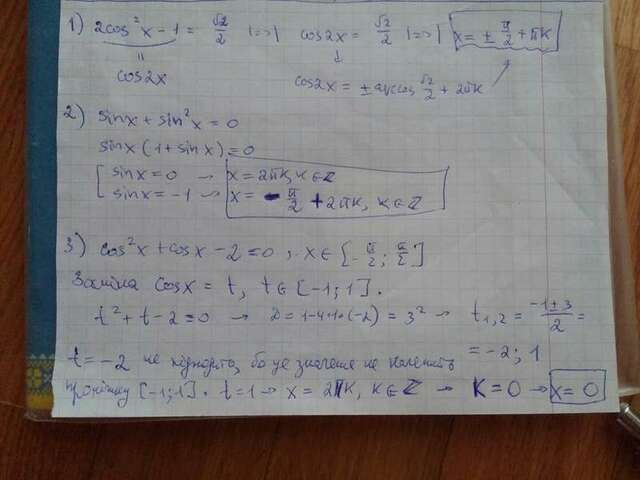 1) 2cos²x - 1 = √2/2 |=>| cos2x = √2/2 |=>| x = ± π/2 + πk
=
cos2x
cos2x = ± arccos √2/2 + 2πk
2) sinx + sin²x = 0
sinx (1 + sinx) = 0
sinx = 0 → x = 2πk, k ∈ Z
sinx = -1 → x = - π/2 + 2πk, k ∈ Z
3) cos²x + cosx - 2 = 0, x ∈ [-π/2; π/2]
Заміна cosx = t, t ∈ [-1; 1].
t² + t - 2 = 0 → D = 1 - 4·1·(-2) = 3² → t1,2 = (-1 ± 3)/2 =
= -2; 1
t = -2 не підходить, бо це значення не належить
проміжку [-1; 1]. t = 1 → x = 2πk, k ∈ Z → k = 0 → x = 0